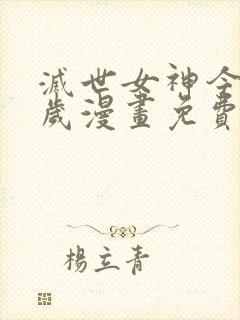 滅世女神今
歲漫畫免費
楊立青